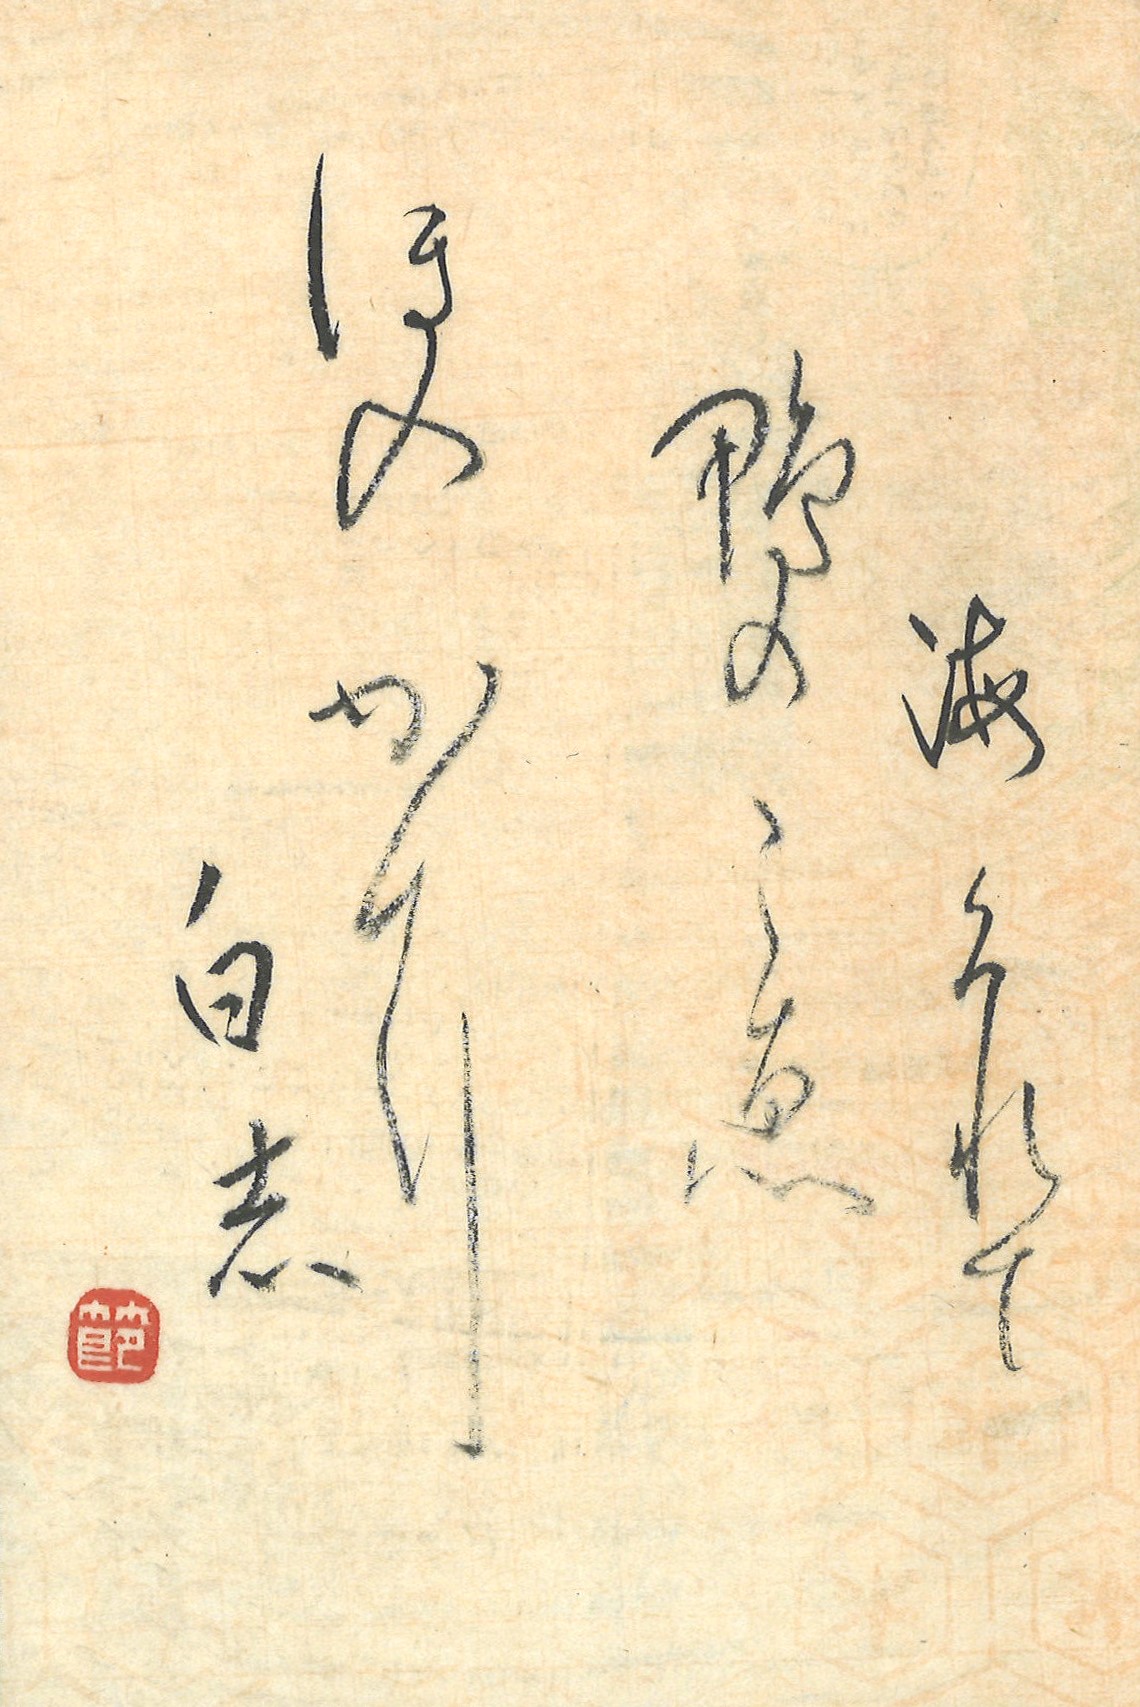 海くれて
鴨のこ恵
ほのかに
白志